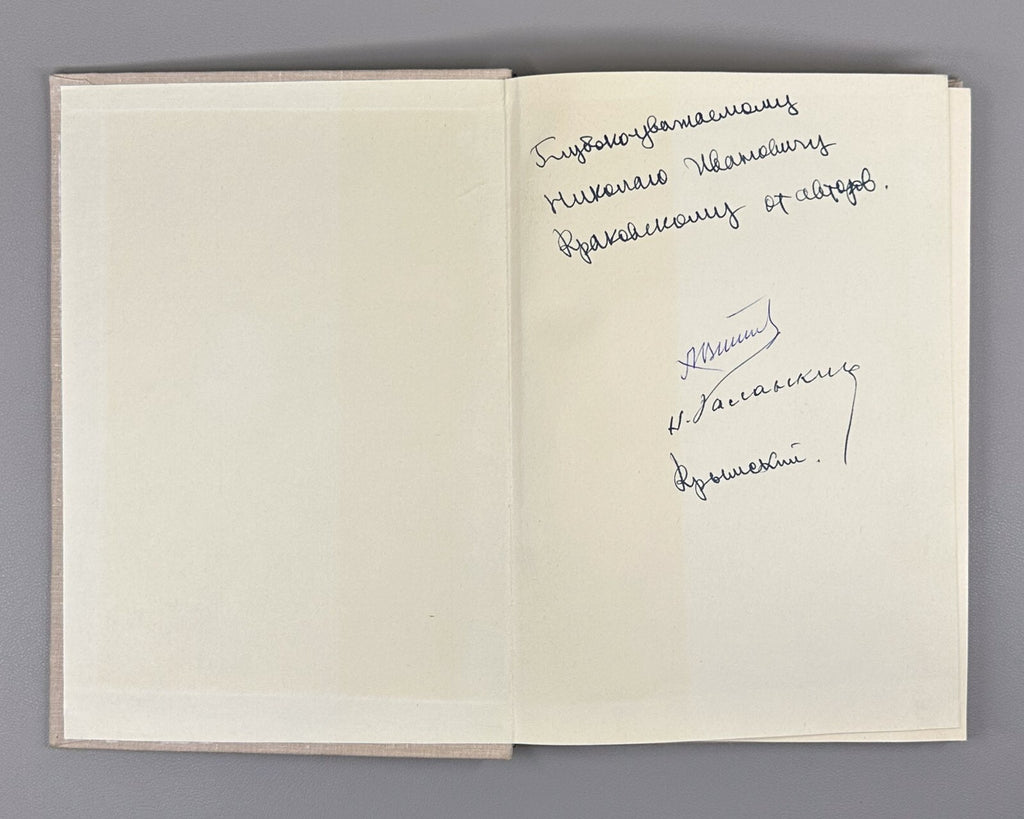 Глубокоуважаемому
Николаю Ивановичу
Краковскому от авторов.
Н. Галанский
Крымский.